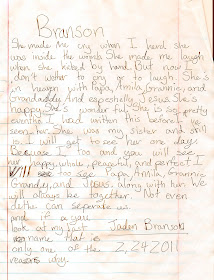 Branson
She made me cry when I heard she
was inside the womb. She made me laugh
when she kicked by hard. But now I
don't wether to cry or to laugh. She's
in heaven with Papa, Amila, Grannie, and
Grandaddy. And especially Jesus. She's
happy. She's wonderful. She is so pretty
I wish I had written this before I
seen her. She was my sister and still
is. I will get to see her one day.
Because I and you will see
her happy, whole, peaceful, and perfect. I
will see too see Papa, Amila, Grannie
Grandey, and Jesus, along with him. We
will always be together. Not even
dethe can separate us.
and if a you
look at my last Jaden Branson
name that is
only one of the 2,24 2011
reasons why.